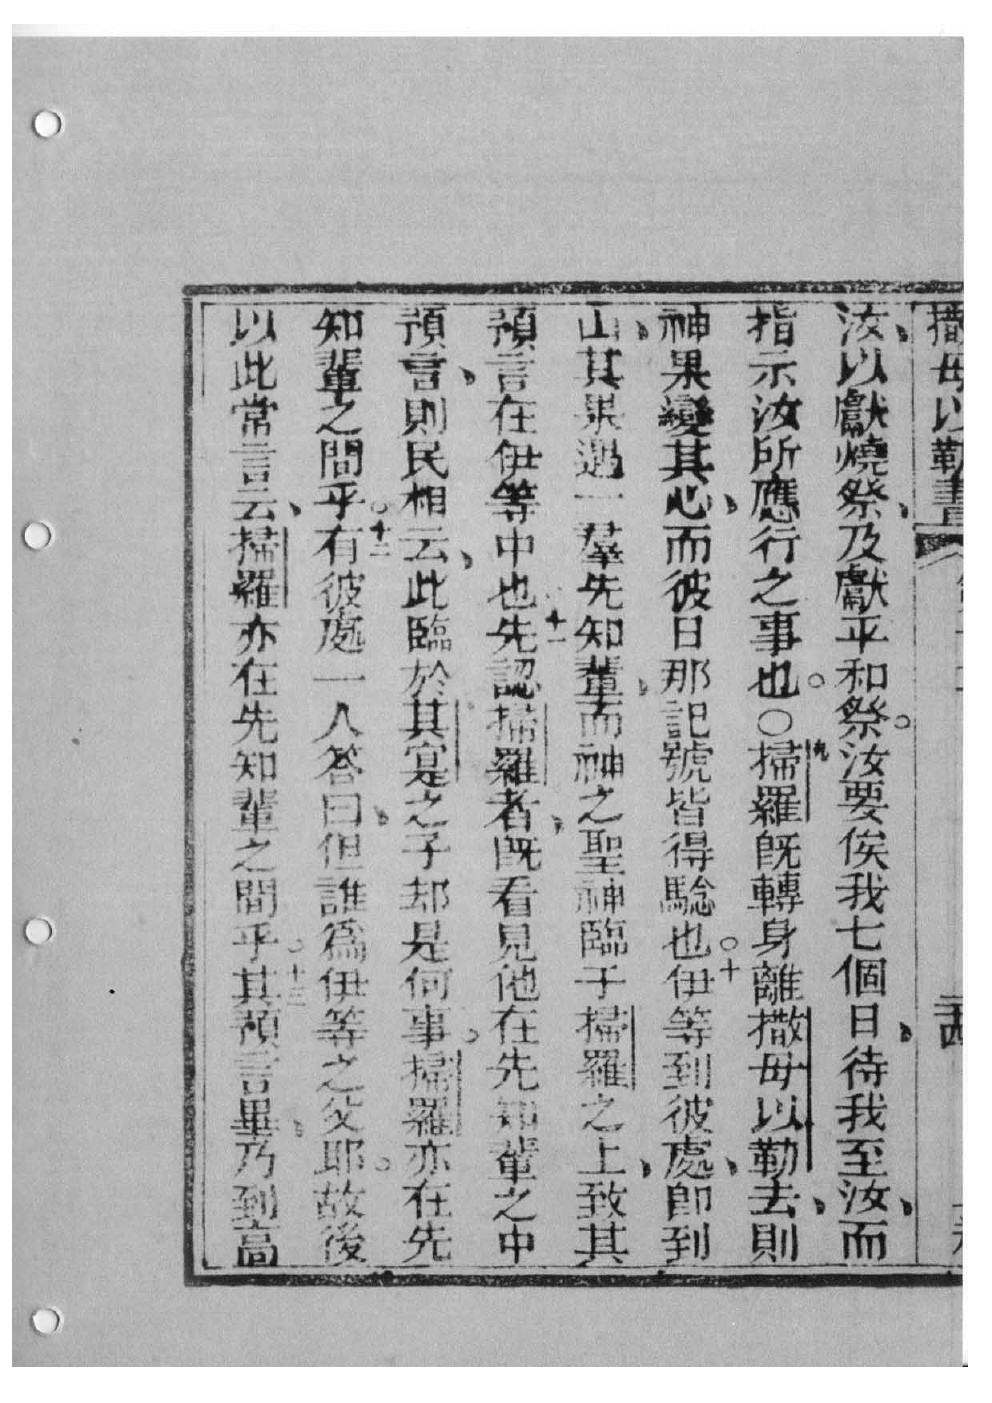 撒母以勒書
汝、以獻燒祭、及獻平和祭。汝要俟我七個日、待我至汝、而
指示汝所應行之事也。○九掃羅既轉身離撒母以勒去、則
神果變其心、而彼日那記號皆得騐也。十伊等到彼處、即到
山、其果遇一羣先知輩、而神之聖神臨于掃羅之上、致其
預言在伊等中也。十一先認掃羅者、既看見他在先知輩之中
預言、則民相云、此臨於其寔之子却是何事。掃羅亦在先
知輩之間乎。十二有彼處一人答曰、但誰為伊等之父耶。故後
以此常言云、掃羅亦在先知輩之間乎。十三其預言畢、乃到高